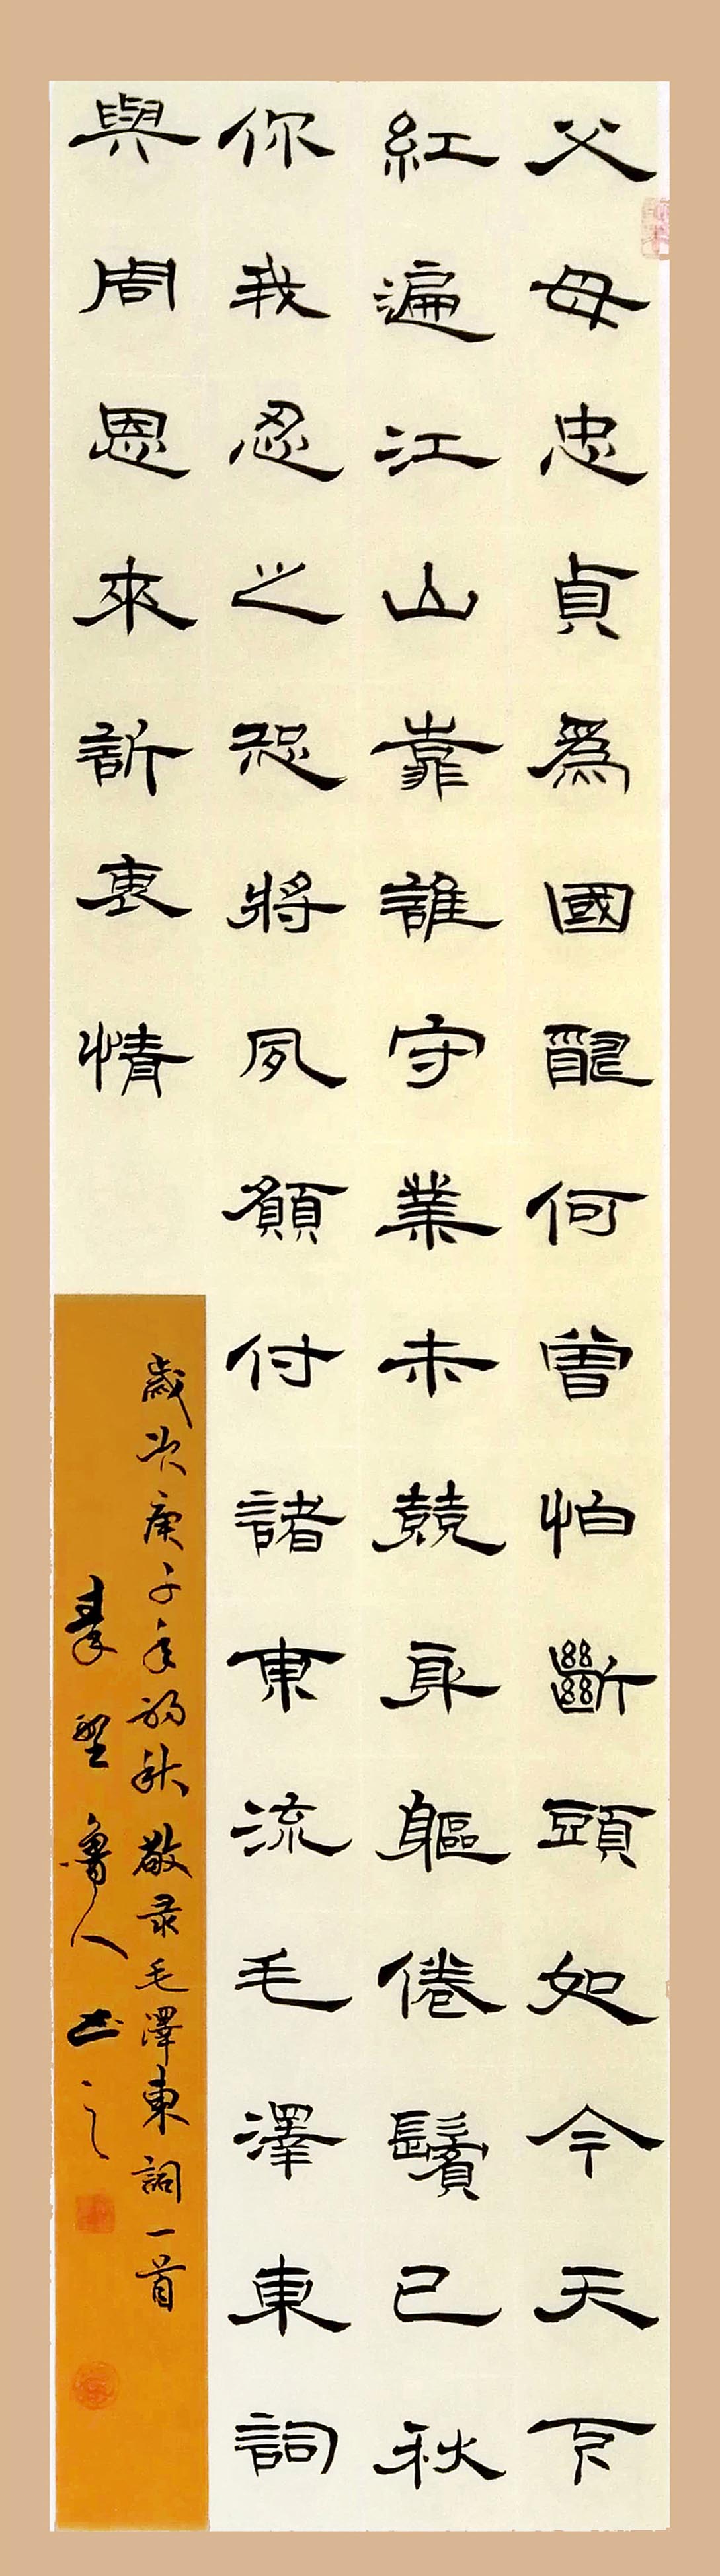 父母忠貞爲國酬何曾怕斷頭如今天下
紅遍江山靠誰守業未競身軀倦鬢已秋
你我忍之恐將夙願付諸東流毛澤東詞
與周恩來訴衷情
歲次庚子年初秋敬录毛澤東詞一首
魯人书之